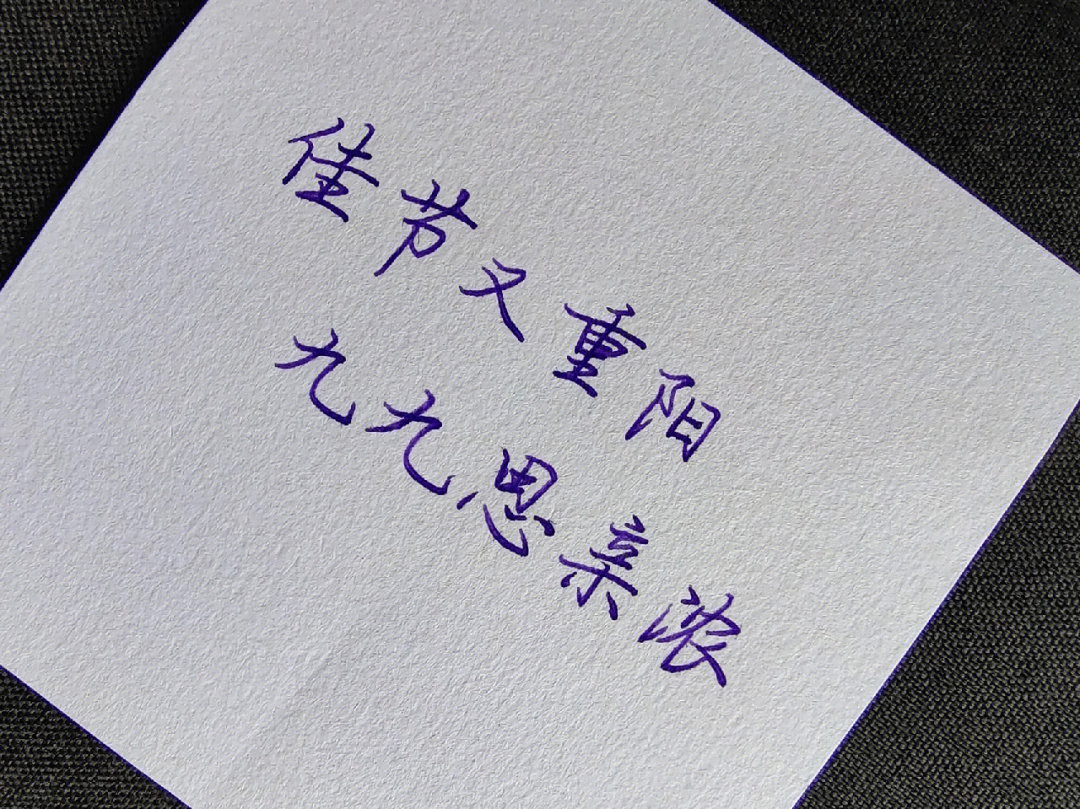 佳节又重阳
九九思亲浓